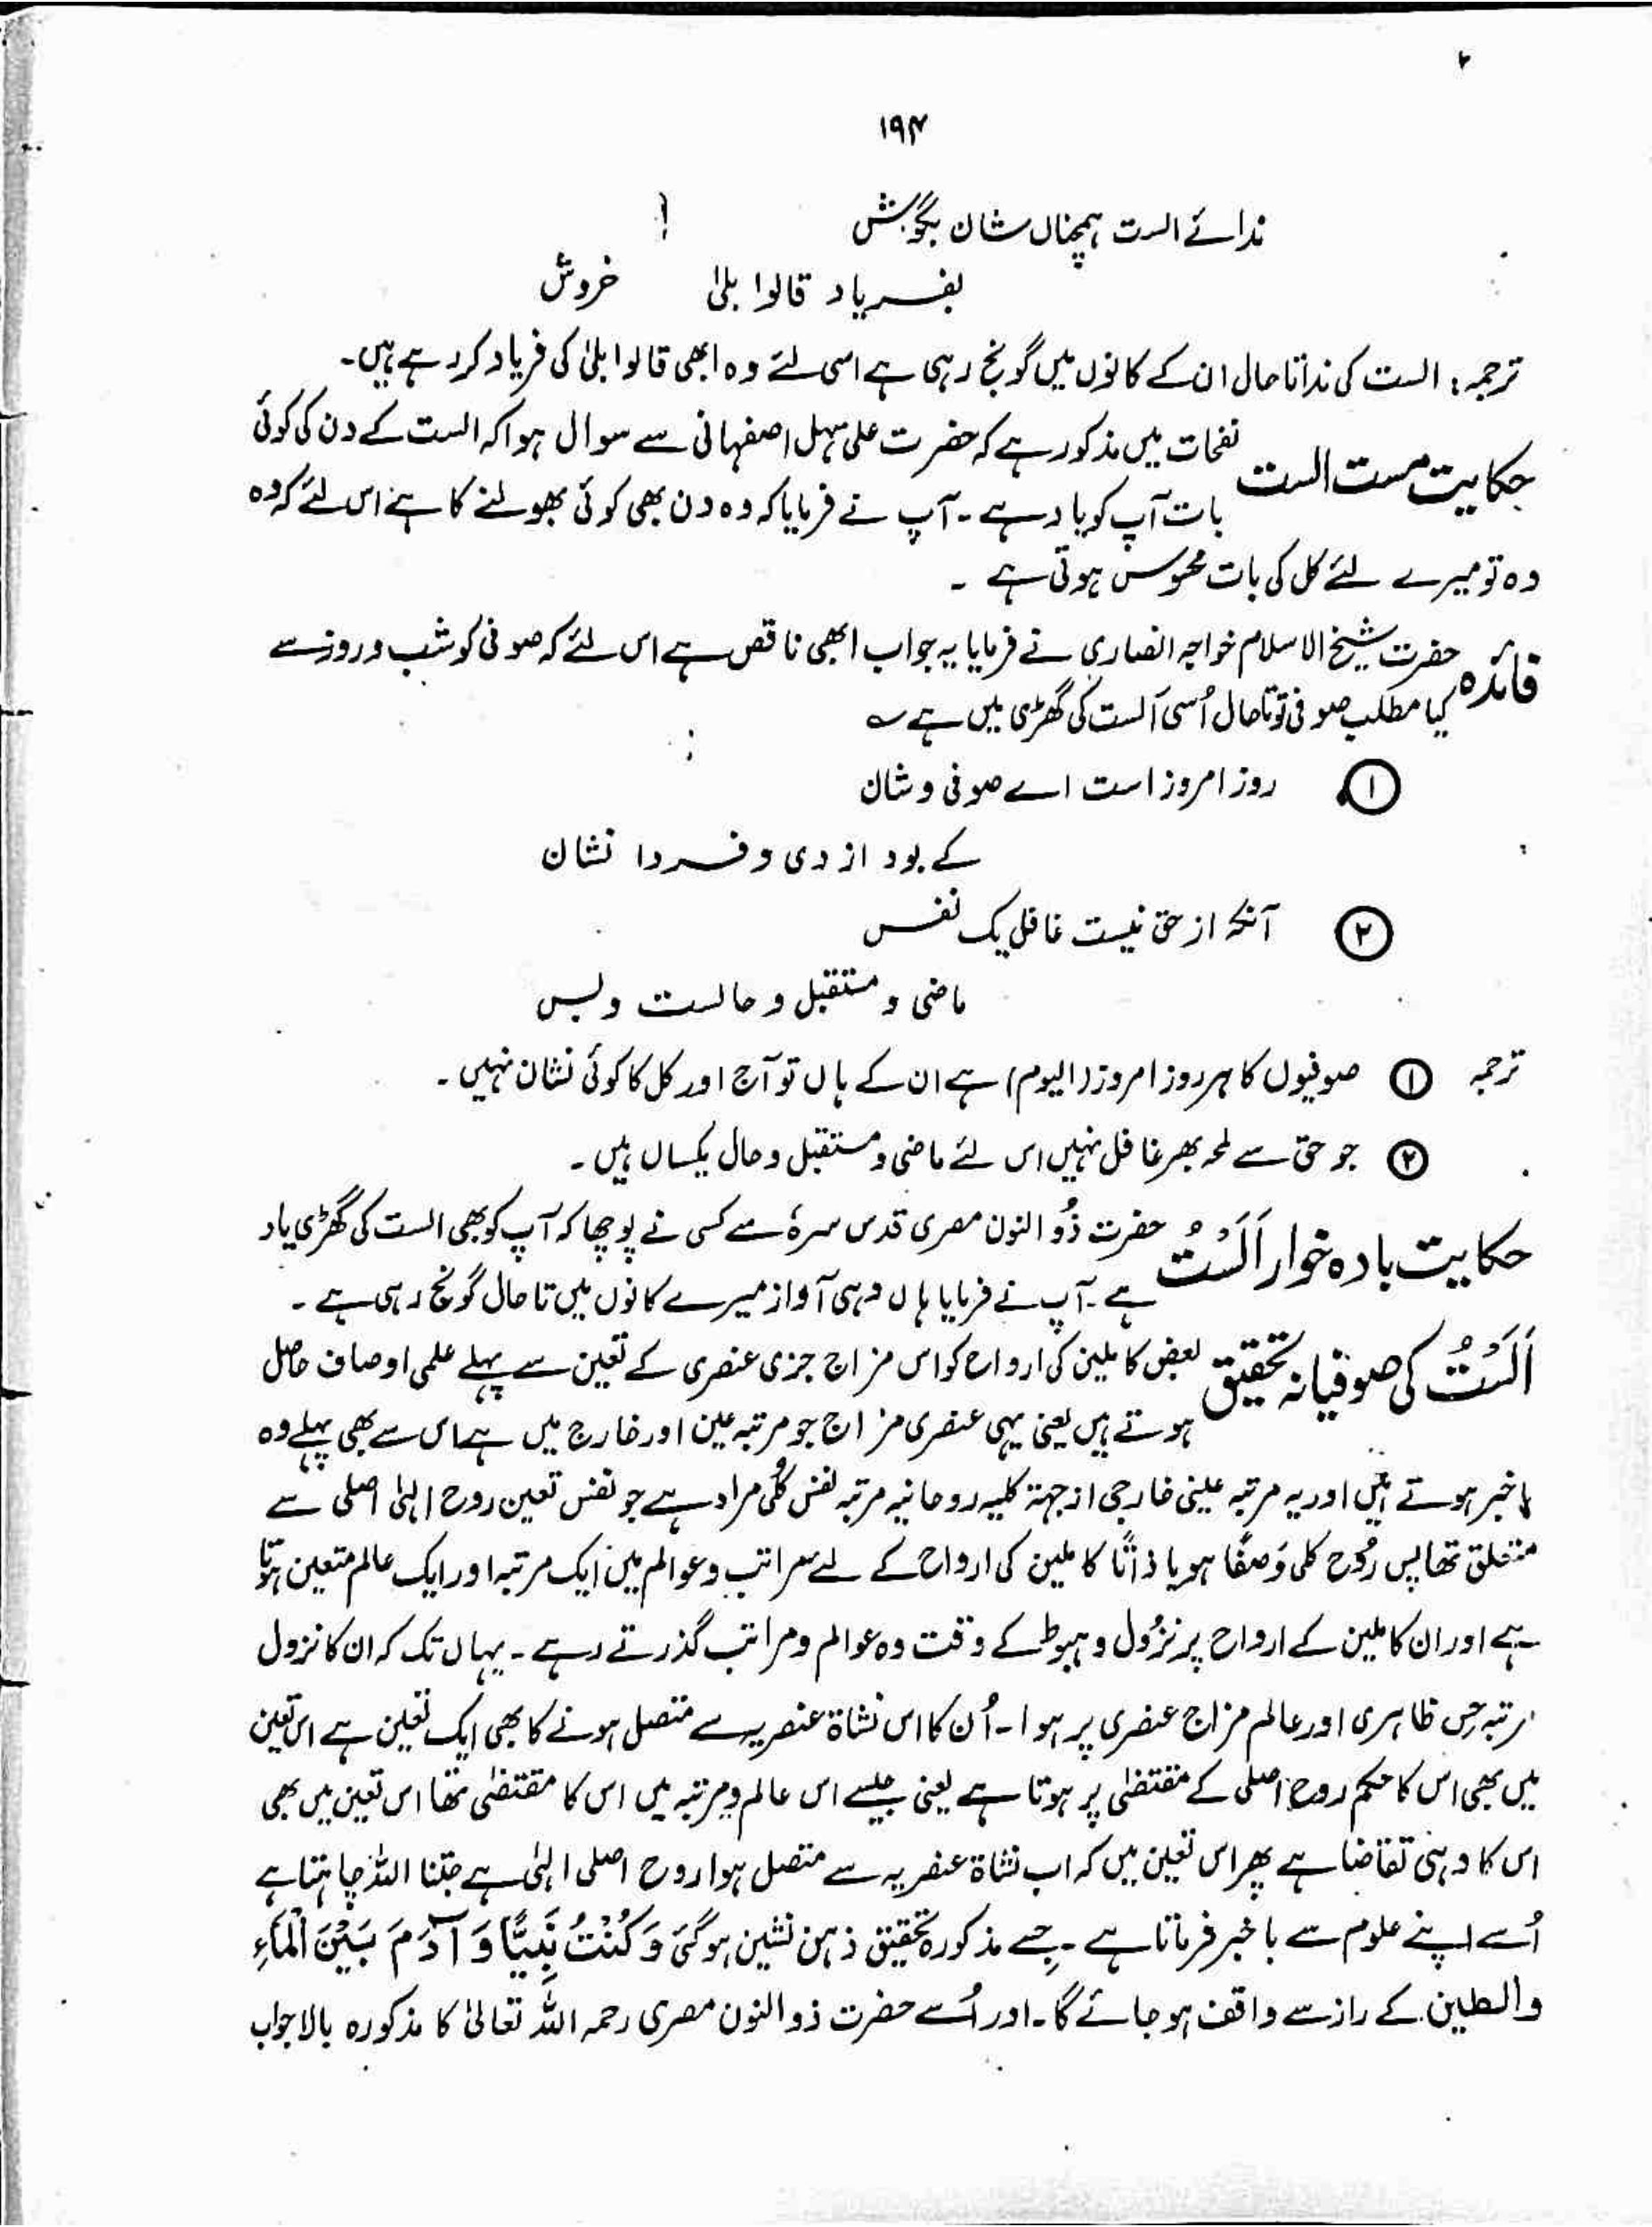 ۱۹۴
ندائے الست ہمچناں شان بگوش !
بفریاد قالوا بلیٰ خروش
ترجمہ: الست کی ندا تا حال ان کے کانوں میں گونج رہی ہے اسی لئے وہ ابھی قالوا بلیٰ کی فریاد کر رہے ہیں۔
حکایت مست الست نفحات میں مذکور ہے کہ حضرت علی سہل اصفہانی سے سوال ہوا کہ الست کے دن کی کوئی
بات آپ کو یاد ہے۔ آپ نے فرمایا کہ وہ دن بھی کوئی بھولنے کا ہے اس لئے کہ وہ
وہ تو میرے لئے کل کی بات محسوس ہوتی ہے ۔
فائدہ حضرت شیخ الاسلام خواجہ انصاری نے فرمایا یہ جواب ابھی ناقص ہے اس لئے کہ صوفی کو شب و روز سے
کیا مطلب صوفی تو تا حال اُسی اَلست کی گھڑی میں ہے ؎
① روز امروز است اے صوفی و شان
کے بود از دی و فردا نشان
② آنکہ از حق نیست غافل یک نفس
ماضی و مستقبل و حالست وبس
ترجمہ ① صوفیوں کا ہر روز امروز (الیوم) ہے ان کے ہاں تو آج اور کل کا کوئی نشان نہیں ۔
② جو حق سے لمحہ بھر غافل نہیں اس لئے ماضی و مستقبل و حال یکساں ہیں ۔
حکایت بادہ خوار اَلَسْتُ حضرت ذُو النون مصری قدس سرہٗ سے کسی نے پوچھا کہ آپ کو بھی الست کی گھڑی یاد
ہے ۔ آپ نے فرمایا ہاں وہی آواز میرے کانوں میں تا حال گونج رہی ہے ۔
اَلَسْتُ کی صوفیانہ تحقیق بعض کاملین کی ارواح کو اس مزاج جزی عنصری کے تعین سے پہلے علمی اوصاف حاصل
ہوتے ہیں یعنی یہی عنصری مزاج جو مرتبہ عین اور خارج میں ہے اس سے بھی پہلے وہ
باخبر ہوتے ہیں اور یہ مرتبہ عینی خارجی از جہتہ کلیہ روحانیہ مرتبہ نفس کُلی مراد ہے جو نفس تعین روح الہیٰ اصلی سے
متعلق تھا پس رُوح کلی وَصفًا ہو یا ذاتًا کاملین کی ارواح کے لئے مراتب و عوالم میں ایک مرتبہ اور ایک عالم متعین ہوتا
ہے اور ان کاملین کے ارواح پر نزُول و ہبوط کے وقت وہ عوالم و مراتب گذرتے رہے ۔ یہاں تک کہ ان کا نزول
مرتبہ حس ظاہری اور عالم مزاج عنصری پر ہوا ۔ اُن کا اس نشاۃ عنصریہ سے متصل ہونے کا بھی ایک تعین ہے اس تعین
میں بھی اس کا حکم روح اصلی کے مقتضیٰ پر ہوتا ہے یعنی جیسے اس عالم و مرتبہ میں اس کا مقتضیٰ تھا اس تعین میں بھی
اس کا وہی تقاضا ہے پھر اس تعین میں کہ اب نشاۃ عنصریہ سے متصل ہوا روح اصلی الہیٰ ہے جتنا اللہ چاہتا ہے
اُسے اپنے علوم سے باخبر فرماتا ہے ۔ جسے مذکورہ تحقیق ذہن نشین ہوگئی وَکُنْتُ نَبِیًّا وَ آدَمَ بَیْنَ الْمَاءِ
والطین کے راز سے واقف ہو جائے گا ۔ اور اُسے حضرت ذوالنون مصری رحمہ اللہ تعالیٰ کا مذکورہ بالا جواب